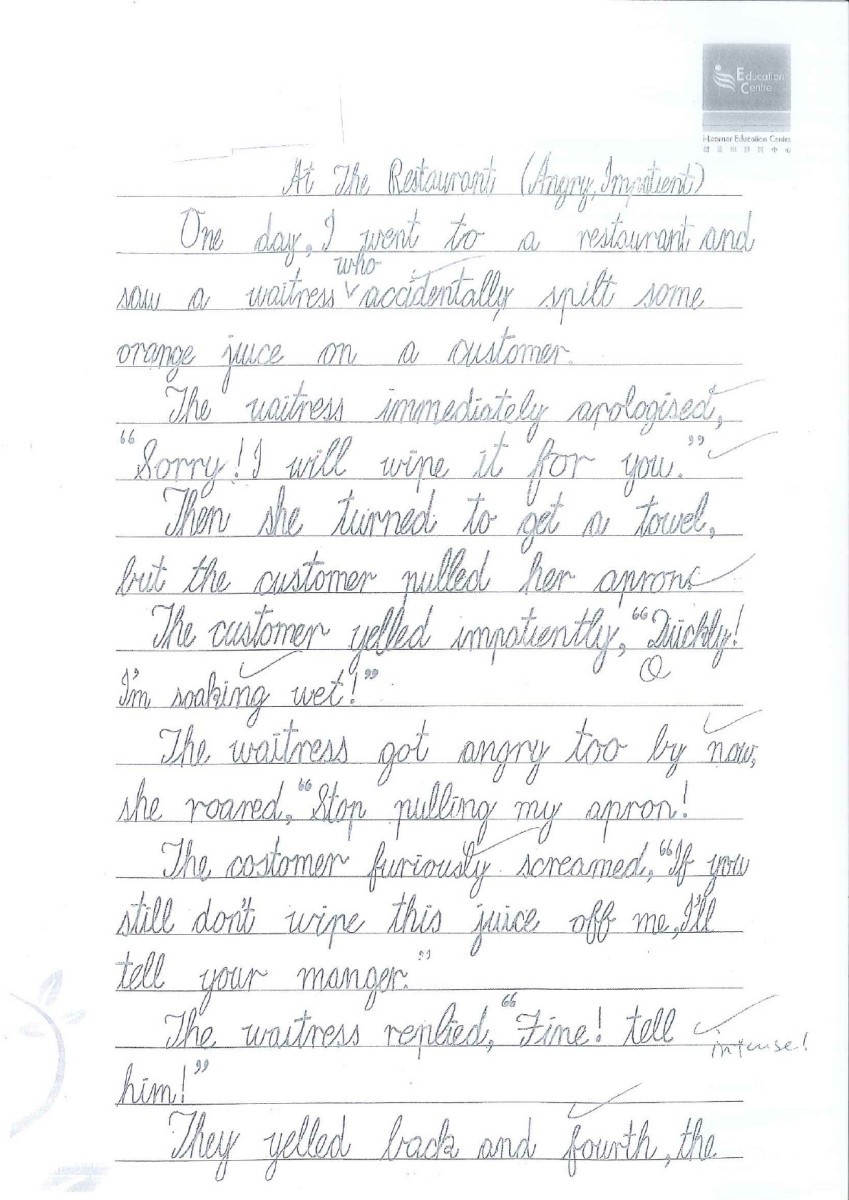 Education
Centre
i-Learner Education Centre
At The Restaurant (Angry, Impatient)
One day, I went to a restaurant and
who
saw a waitress accidentally spilt some
orange juice on a customer.
The waitress immediately apologised,
"Sorry! I will wipe it for you."
Then she turned to get a towel,
but the customer pulled her apron.
The customer yelled impatiently, "Quickly!
Q
I'm soaking wet!"
The waitress got angry too by now,
she roared, "Stop pulling my apron!
The costomer furiously screamed, "If you
still don't wipe this juice off me, I'll
tell your manger."
The waitress replied, "Fine! tell
intense!
him!"
They yelled back and fourth, the